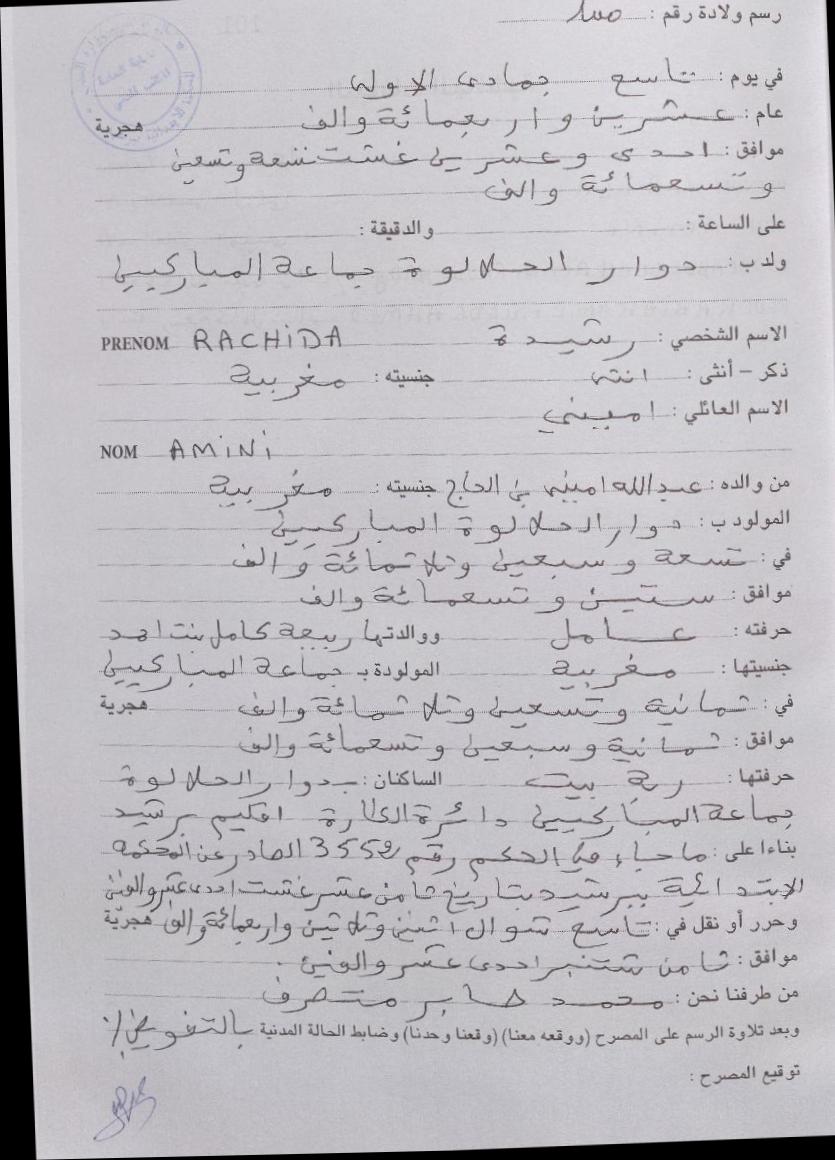 رسم ولادة رقم :
في يوم : تاسع جمادى الاولى
عام : عشرين واربعمائة والف هجرية
موافق : احدى وعشرين غشت تسعة وتسعين
وتسعمائة والف
على الساعة : والدقيقة :
ولد ب : دوار الحلالوة جماعة المباركيين
الاسم الشخصي : رشيدة PRENOM RACHiDA
ذكر – أنثى : انثى جنسيته : مغربية
الاسم العائلي : اميني
NOM AMiNi
من والده : عبدالله اميني بن الحاج جنسيته : مغربية
المولود ب : دوار الحلالوة المباركيين
في : تسعة وسبعين وثلاثمائة والف
موافق : ستين وتسعمائة والف
حرفته : عامل ووالدتها ربيعة كامل بنت احمد
جنسيتها : مغربية المولودة بـ جماعة المباركيين
في : ثمانية وتسعين وثلاثمائة والف هجرية
موافق : ثمانية وسبعين وتسعمائة والف
حرفتها : ربة بيت الساكنان : بدوار الحلالوة
جماعة المباركيين دائرة الكارة اقليم برشيد
بناءا على : ما جاء في الحكم رقم 3552 الصادر عن المحكمة
الابتدائية ببرشيد بتاريخ ثامن عشر غشت احدى عشر والفين
وحرر أو نقل في : تاسع شوال اثنين وثلاثين واربعمائة والف هجرية
موافق : ثامن شتنبر احدى عشر والفين .
من طرفنا نحن : محمد صابر متصرف
وبعد تلاوة الرسم على المصرح (ووقعه معنا) (وقعنا وحدنا) وضابط الحالة المدنية بالتفويض ./
توقيع المصرح :